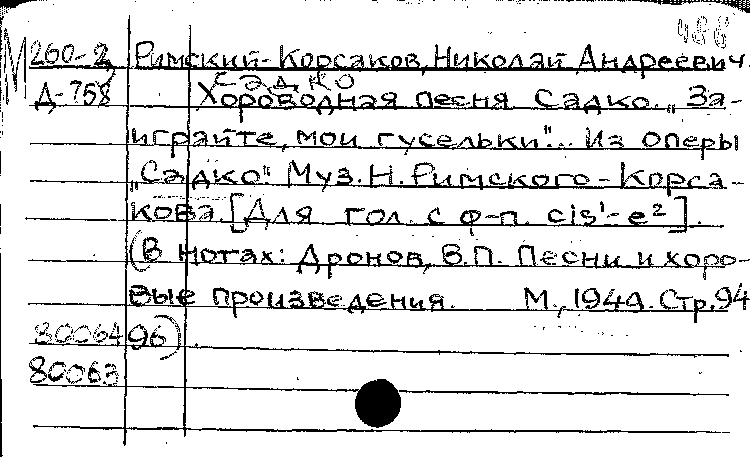 486
М 260-2 Римский-Корсаков, Николай Андреевич.
Садко
Д-758 Хороводная песня Садко. „За-
играйте, мои гусельки"... Из оперы
„Садко" Муз. Н. Римского-Корса-
кова. [Для гол. с ф-п. cis¹-e²].
(В нотах: Дронов, В.П. Песни и хоро-
вые произведения. М., 1949. Стр. 94
80064 96).
80063